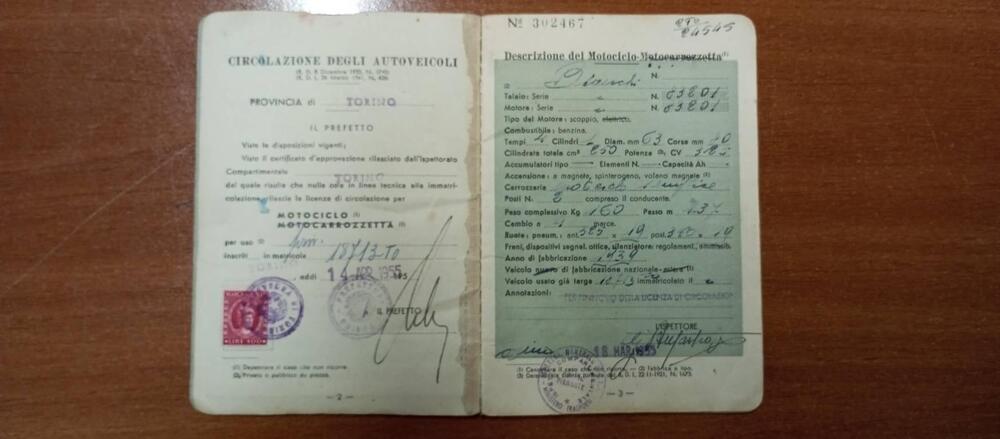 CIRCOLAZIONE DEGLI AUTOVEICOLI
(R. D. 8 Dicembre 1933, N. 1740)
PROVINCIA di TORINO
IL PREFETTO
Viste le disposizioni vigenti;
Visto il certificato d'approvazione rilasciato dall'Ispettorato
Compartimentale TORINO
del quale risulta che nulla osta in linea tecnica alla immatri-
colazione rilascia la licenza di circolazione per
MOTOCICLO (1)
MOTOCARROZZETTA (1)
per uso (2)
inscritt in matricola 18713 TO
TORINO, addì 14 APR. 1955
IL PREFETTO
LIRE 400
(1) Depennare il caso che non ricorre.
(2) Privato o pubblico su piazza.
— 2 —
Nº 302467
Descrizione del Motociclo-Motocarrozzetta (1)
(2) Bianchi N.
Telaio: Serie N. 63201
Motore: Serie N. 63201
Tipo del Motore: scoppio, elettrico.
Combustibile: benzina.
Tempi 4 Cilindri 1 Diam. mm 63 Corse mm
Cilindrata totale cm³ 250 Potenza CV
Accumulatori tipo Elementi N. Capacità Ah
Accensione: a magnete, spinterogeno, volano magnete (1)
Carrozzeria
Posti N. 2 compreso il conducente.
Peso complessivo Kg 160 Passo m
Cambio a marce.
Ruote: pneum.: ant. x 19 post. x 19
Freni, dispositivi segnal. ottico, silenziatore: regolament.
Anno di fabbricazione 1939
Veicolo nuovo di fabbricazione nazionale-estera (1)
Veicolo usato già targa immatricolato il
Annotazioni: DELLA LICENZA DI CIRCOLAZIONE
L'ISPETTORE
18 MAR. 1955
(1) Cancellare il caso che non ricorre. — (2) Fabbrica e tipo.
— 3 —